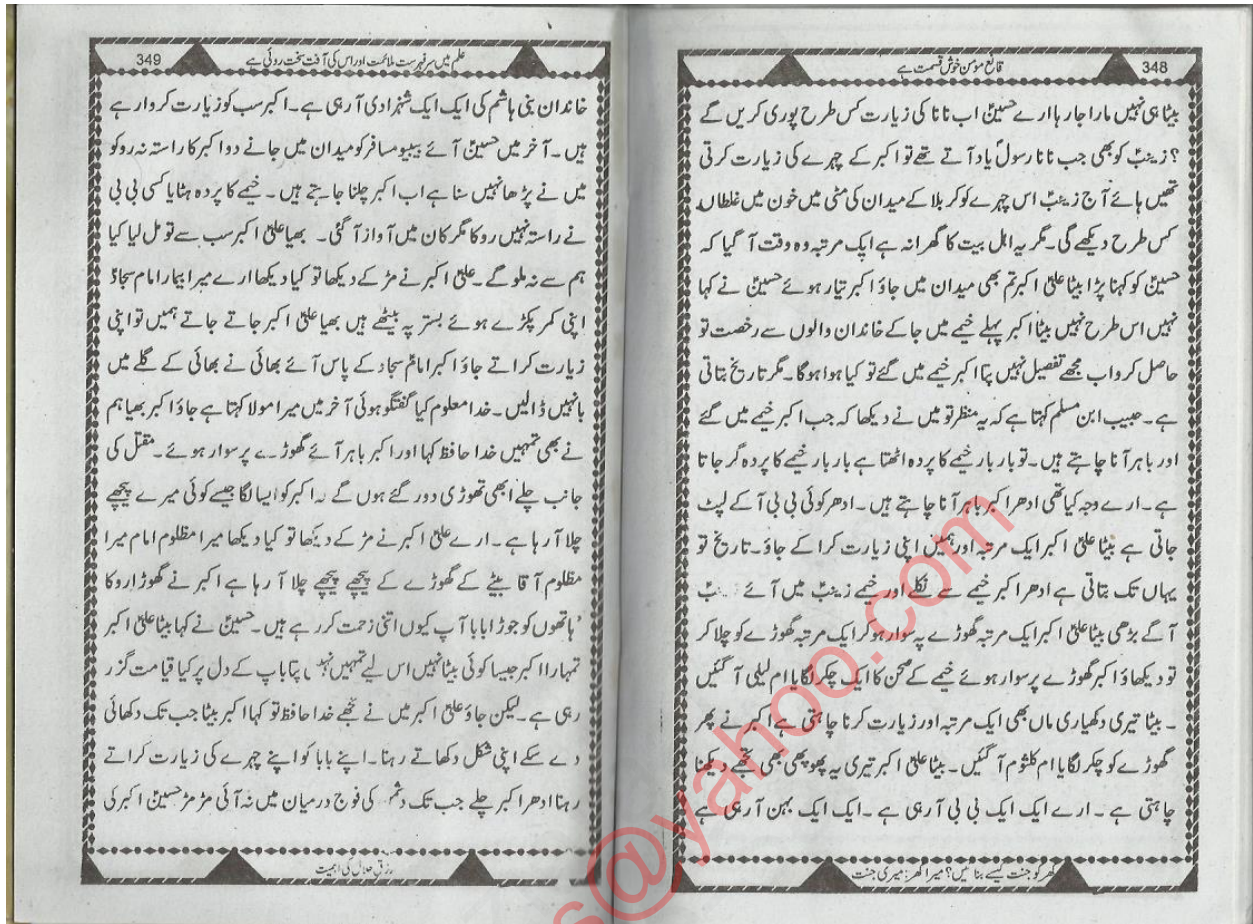 348
قانع مومن خوش قسمت ہے
بیٹا ہی نہیں مارا جا رہا ارے حسینؑ اب نانا کی زیارت کس طرح پوری کریں گے
؟ زینبؑ کو بھی جب نانا رسولؐ یاد آتے تھے تو اکبر کے چہرے کی زیارت کرتی
تھیں ہائے آج زینبؑ اس چہرے کو کربلا کے میدان کی مٹی میں خون میں غلطاں
کس طرح دیکھے گی۔ مگر یہ اہل بیت کا گھرانہ ہے ایک مرتبہ وہ وقت آ گیا کہ
حسینؑ کو کہنا پڑا بیٹا علیؑ اکبر تم بھی میدان میں جاؤ اکبر تیار ہوئے حسینؑ نے کہا
نہیں اس طرح نہیں بیٹا اکبر پہلے خیمے میں جا کے خاندان والوں سے رخصت تو
حاصل کرو اب مجھے تفصیل نہیں پتا اکبر خیمے میں گئے تو کیا ہوا ہوگا۔ مگر تاریخ بتاتی
ہے۔ حبیب ابن مسلم کہتا ہے کہ یہ منظر تو میں نے دیکھا کہ جب اکبر خیمے میں گئے
اور باہر آنا چاہتے ہیں۔ تو بار بار خیمے کا پردہ اٹھتا ہے بار بار خیمے کا پردہ گر جاتا
ہے۔ ارے وجہ کیا تھی ادھر اکبر باہر آنا چاہتے ہیں۔ ادھر کوئی بی بی آ کے لپٹ
جاتی ہے بیٹا علیؑ اکبر ایک مرتبہ اور ہمیں اپنی زیارت کرا کے جاؤ۔ تاریخ تو
یہاں تک بتاتی ہے ادھر اکبر خیمے سے نکلے اور خیمے زینبؑ میں آئے
آگے بڑھی بیٹا علیؑ اکبر ایک مرتبہ گھوڑے پہ سوار ہو کر ایک مرتبہ گھوڑے کو چلا کر
تو دیکھاؤ اکبر گھوڑے پر سوار ہوئے خیمے کے صحن کا ایک چکر لگایا ام لیلیٰ آ گئیں
۔ بیٹا تیری دکھیاری ماں بھی ایک مرتبہ اور زیارت کرنا چاہتی ہے اکبر نے پھر
گھوڑے کو چکر لگایا ام کلثوم آ گئیں۔ بیٹا علیؑ اکبر تیری یہ پھوپھی بھی تجھے دیکھنا
چاہتی ہے۔ ارے ایک ایک بی بی آ رہی ہے۔ ایک ایک بہن آ رہی ہے
گھر کو جنت کیسے بنائیں؟ میرا گھر: میری جنت
349
علم میں سر فہرست ملائمت اور اس کی آفت سخت روئی ہے
خاندان بنی ہاشم کی ایک ایک شہزادی آ رہی ہے۔ اکبر سب کو زیارت کروا رہے
ہیں۔ آخر میں حسینؑ آئے بیبیو مسافر کو میدان میں جانے دو اکبر کا راستہ نہ روکو
میں نے پڑھا نہیں سنا ہے اب اکبر چلنا چاہتے ہیں۔ خیمے کا پردہ ہٹایا کسی بی بی
نے راستہ نہیں روکا مگر کان میں آواز آ گئی۔ بھیا علیؑ اکبر سب سے تو مل لیا کیا
ہم سے نہ ملو گے۔ علیؑ اکبر نے مڑ کے دیکھا تو کیا دیکھا ارے میرا بیمار امام سجادؑ
اپنی کمر پکڑے ہوئے بستر پہ بیٹھے ہیں بھیا علیؑ اکبر جاتے جاتے ہمیں تو اپنی
زیارت کراتے جاؤ اکبر امامؑ سجاد کے پاس آئے بھائی نے بھائی کے گلے میں
بانہیں ڈالیں۔ خدا معلوم کیا گفتگو ہوئی آخر میں میرا مولا کہتا ہے جاؤ اکبر بھیا ہم
نے بھی تمہیں خدا حافظ کہا اور اکبر باہر آئے گھوڑے پر سوار ہوئے۔ مقتل کی
جانب چلے ابھی تھوڑی دور گئے ہوں گے کہ اکبر کو ایسا لگا جیسے کوئی میرے پیچھے
چلا آ رہا ہے۔ ارے علیؑ اکبر نے مڑ کے دیکھا تو کیا دیکھا میرا مظلوم امام میرا
مظلوم آقا بیٹے کے گھوڑے کے پیچھے پیچھے چلا آ رہا ہے اکبر نے گھوڑا روکا
ہاتھوں کو جوڑا بابا آپ کیوں اتنی زحمت کر رہے ہیں۔ حسینؑ نے کہا بیٹا علیؑ اکبر
تمہارا اکبر جیسا کوئی بیٹا نہیں اس لیے تمہیں نہیں پتا باپ کے دل پر کیا قیامت گزر
رہی ہے۔ لیکن جاؤ علیؑ اکبر میں نے تجھے خدا حافظ تو کہا اکبر بیٹا جب تک دکھائی
دے سکے اپنی شکل دکھاتے رہنا۔ اپنے بابا کو اپنے چہرے کی زیارت کراتے
رہنا ادھر اکبر چلے جب تک دشمن کی فوج درمیان میں نہ آئی مڑ مڑ حسینؑ اکبر کی
رزق حلال کی اہمیت
s@yahoo.com